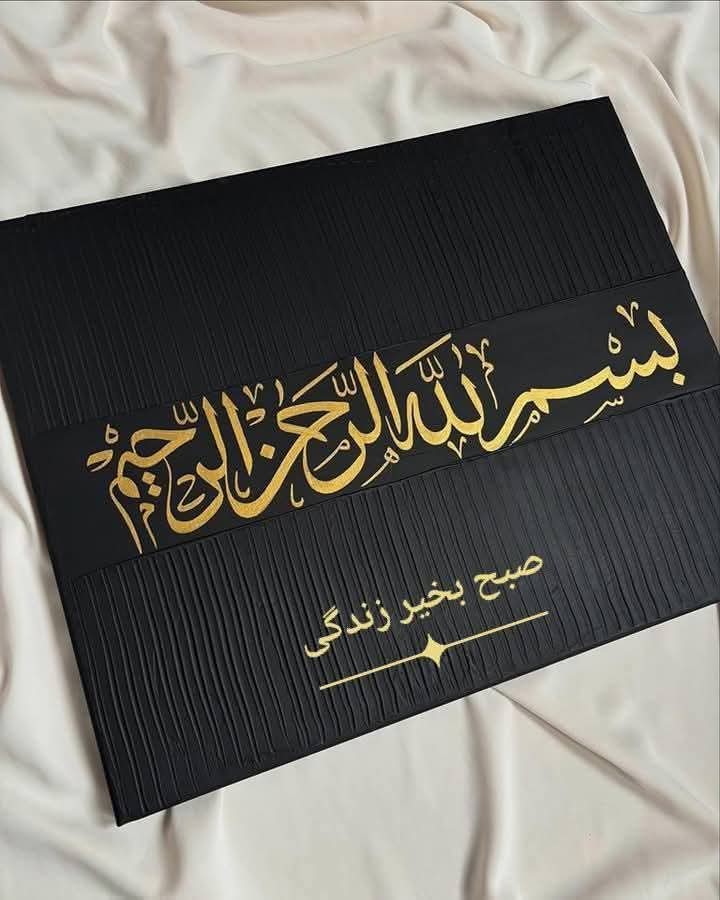 بسم الله الرحمن الرحيم
صبح بخیر زندگی